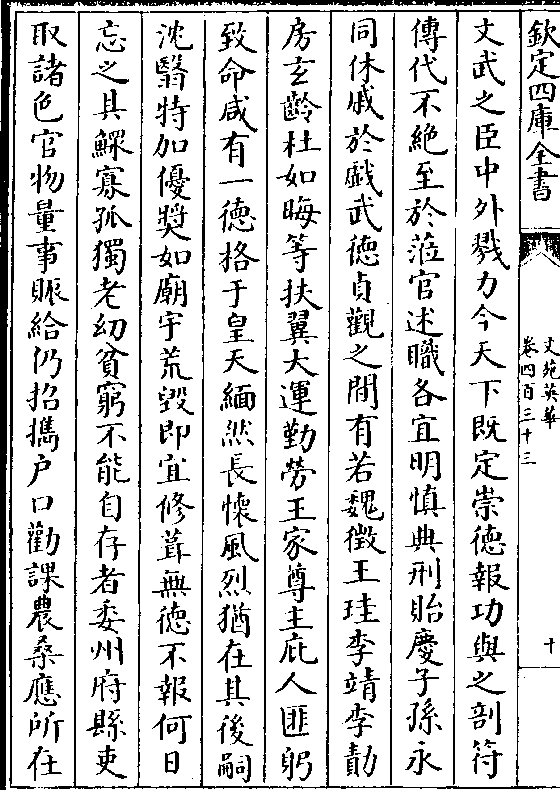 欽定四庫全書
文苑英華
卷四百三十三
十
文武之臣中外戮力今天下既定崇德報功與之剖符
傳代不絶至於蒞官述職各宜明慎典刑貽慶子孫永
同休戚於戯武徳貞觀之間有若魏徵王珪李靖李勣
房玄齡杜如晦等扶翼大運勤勞王家尊主庇人匪躬
致命咸有一徳格于皇天緬然長懷風烈猶在其後嗣
沈翳特加優奬如廟宇荒毀即宜修葺無徳不報何日
忘之其鰥寡孤獨老幼貧窮不能自存者委州府縣吏
取諸色官物量事賑給仍招攜户口勸課農桑應所在